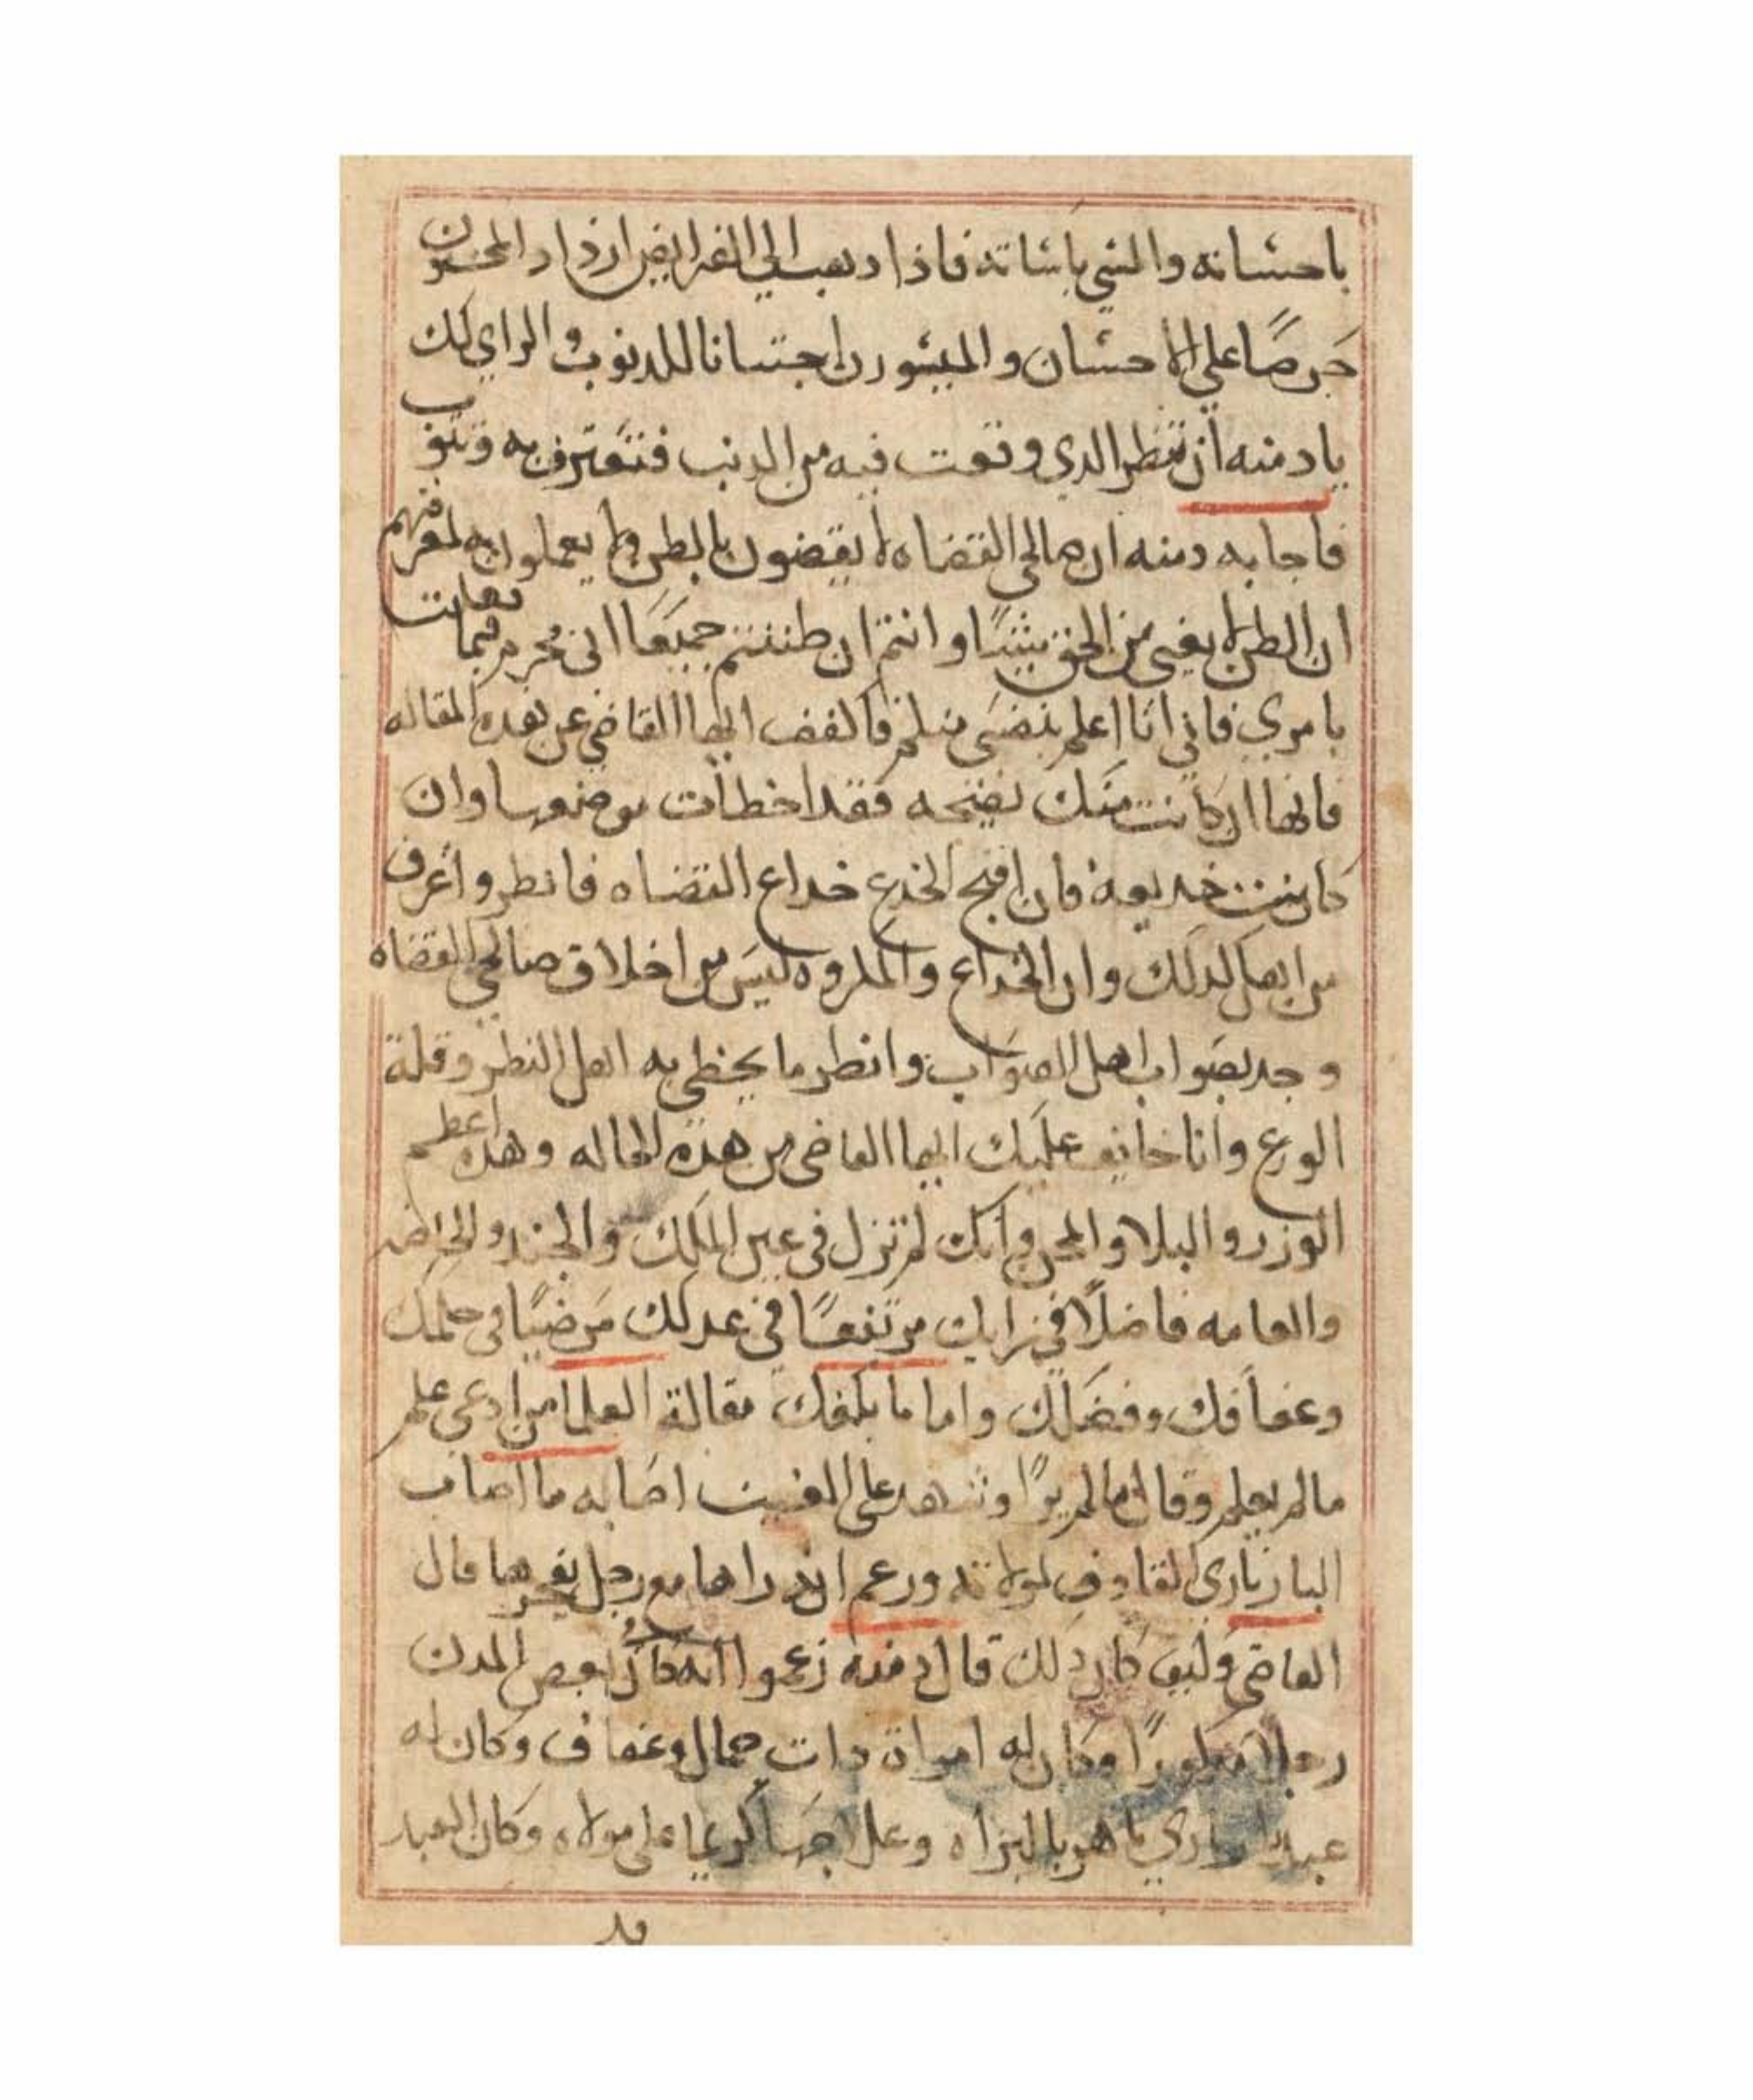 باحسانه والمسي باساته فاذا دهب الي الفرايض ازداد المحسنون
حرصًا على الاحسان والميسورن اجتنابا للدنوب والراي لك
يا دمنه ان تنظر الدي وقعت فيه من الدنب فتعترف به وتتوب
فاجابه دمنه ان صالحي القضاه لا يقضون بالظن ولا يعملون به لمعرفتهم
ان الظن لا يغني من الحق شيئًا وانتم ان ظننتم جميعًا اني مجرم فيما
بامري فاني انا اعلم بنفسي منكم فاكفف ايها القاضي عن هده المقاله
فانها ان كانت منك نصيحه فقد اخطات موضعها وان
كانت خديعة فان اقبح الخدع خداع القضاه فانظر واعرف
من اهل لدلك وان الخداع والمكروه ليس من اخلاق صالحي القضاه
وجد بصواب اهل الصواب وانظر ما يخطي به اهل النظر وقلة
الورع وانا خايف عليك ايها القاضي من هده الحاله وهده اعظم
الوزر والبلا والمحن وانك لم تزل في عين الملك والجند والخاصه
والعامه فاضلًا في رايك مرتفعًا في عدلك مرضيًا في حلمك
وعفافك وفضلك واما ما بلغك مقالة العلما من ادعى علم
ما لم يعلم وقال ما لم يرا وشهد على الغيب اصابه ما اصاب
البازياري القادف لمولاته وزعم انه راها مع رجل قال
القاضي وكيف كان دلك قال دمنه زعموا انه كان بعض المدن
رجلا مدكورًا وكان له امراة دات جمال وعفاف وكان له
عبدا ماهر بالبزاه وعلاجها كريما على مولاه وكان العبد
قد